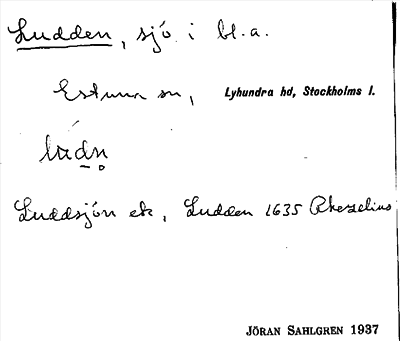 Ludden, sjö i bl.a.
Estuna sn, Lyhundra hd, Stockholms l.
lúdn
Luddsjön ek, Ludden 1635 Rhezelius
JÖRAN SAHLGREN 1937